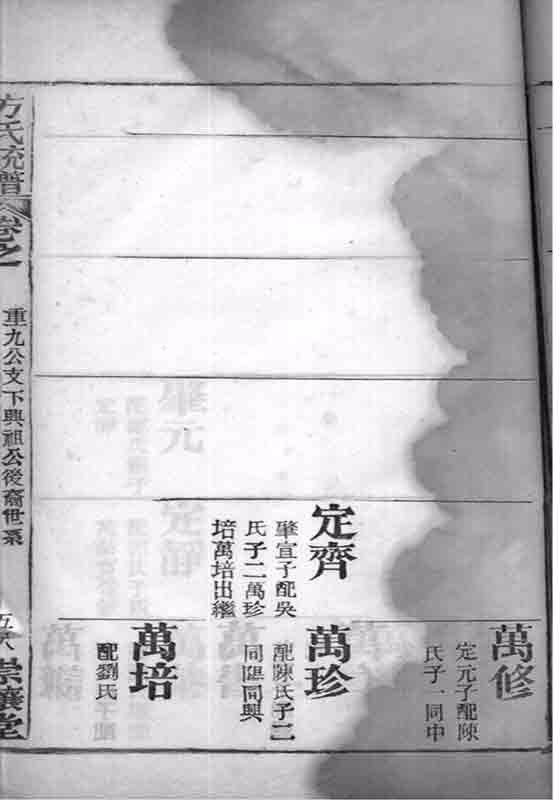 萬修
定元子配陳
氏子一同中
定齊
肇宣子配吳
氏子二萬珍
培萬培出繼
萬珍
配陳氏子二
同匯同興
萬培
配劉氏
方氏統譜
卷之一
重九公支下興祖公後裔世系
五八
崇讓堂